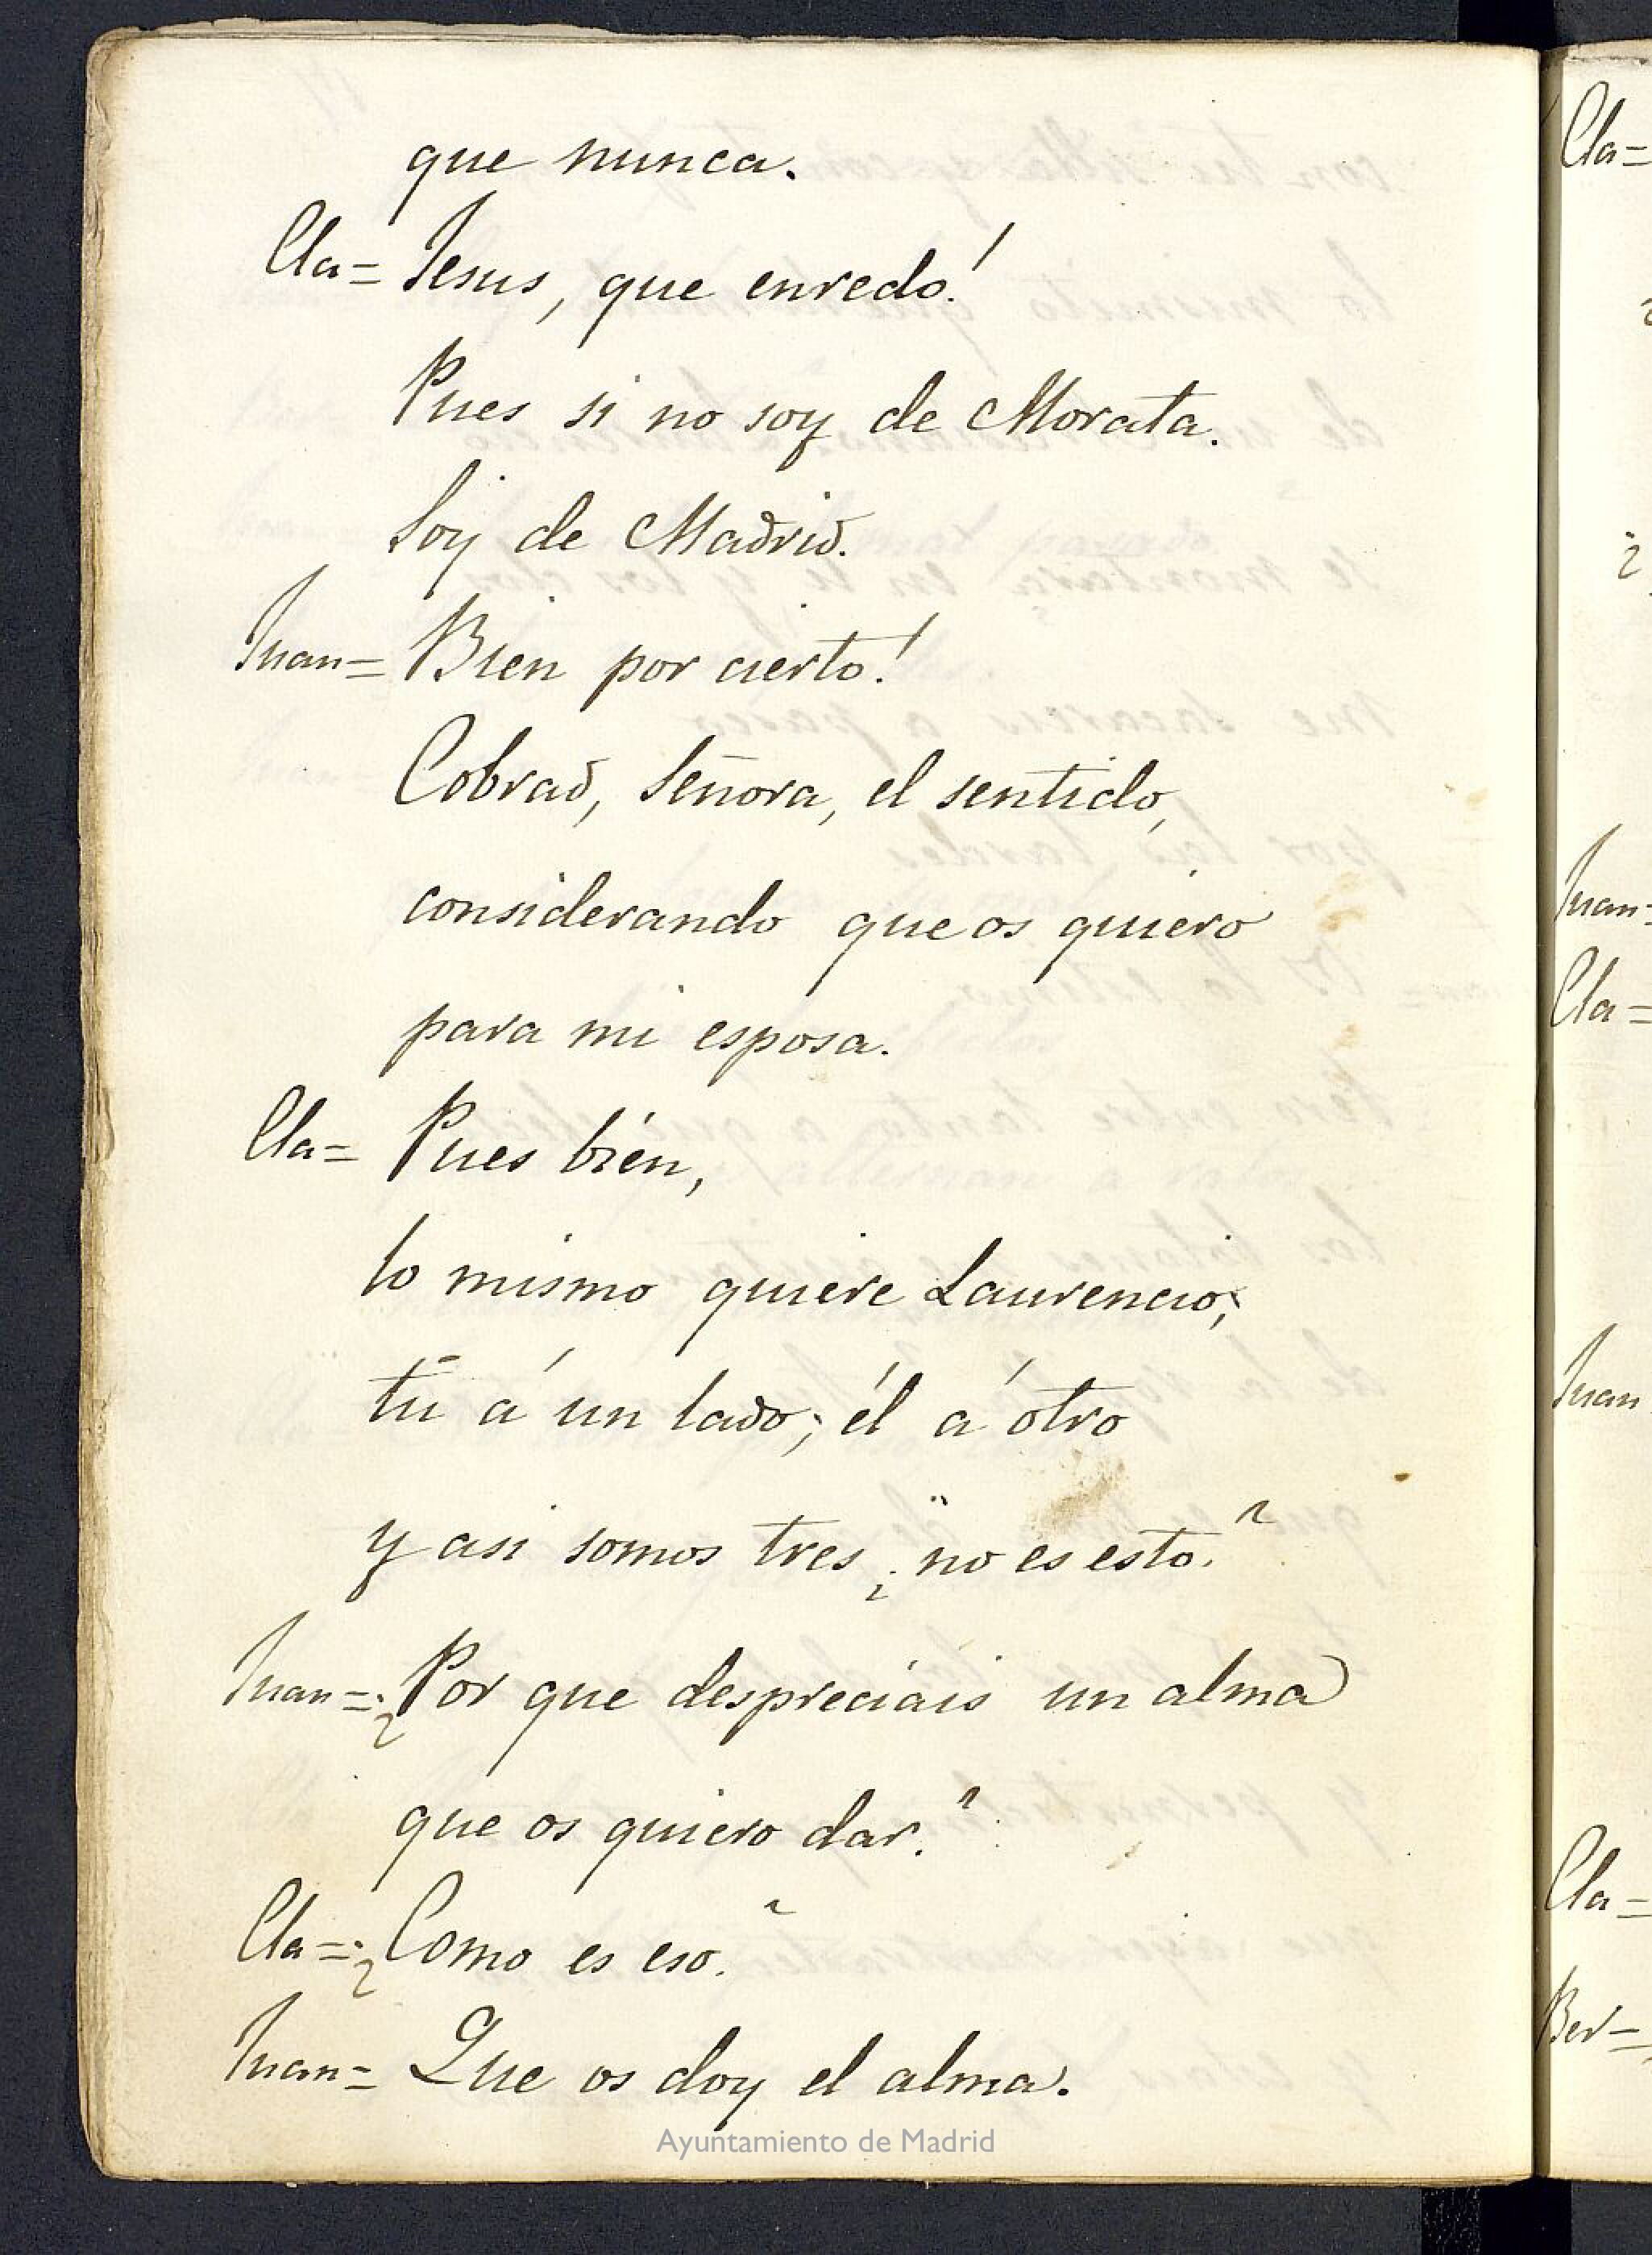 que nunca.
Cla= Jesus, que enredo!
Pues si no soy de Morata.
Soy de Madrid.
Juan= Bien por cierto!
Cobrad, Señora, el sentido,
considerando que os quiero
para mi esposa.
Cla= Pues bien,
lo mismo quiere Laurencio;
tú á un lado; él á otro
y asi somos tres ¿no es esto?
Juan=¿Por que despreciais un alma
que os quiero dar?
Cla=¿Como es eso?
Juan= Que os doy el alma.
Ayuntamiento de Madrid
Cla=
Juan=
Cla=
Juan
Cla=
Ber=